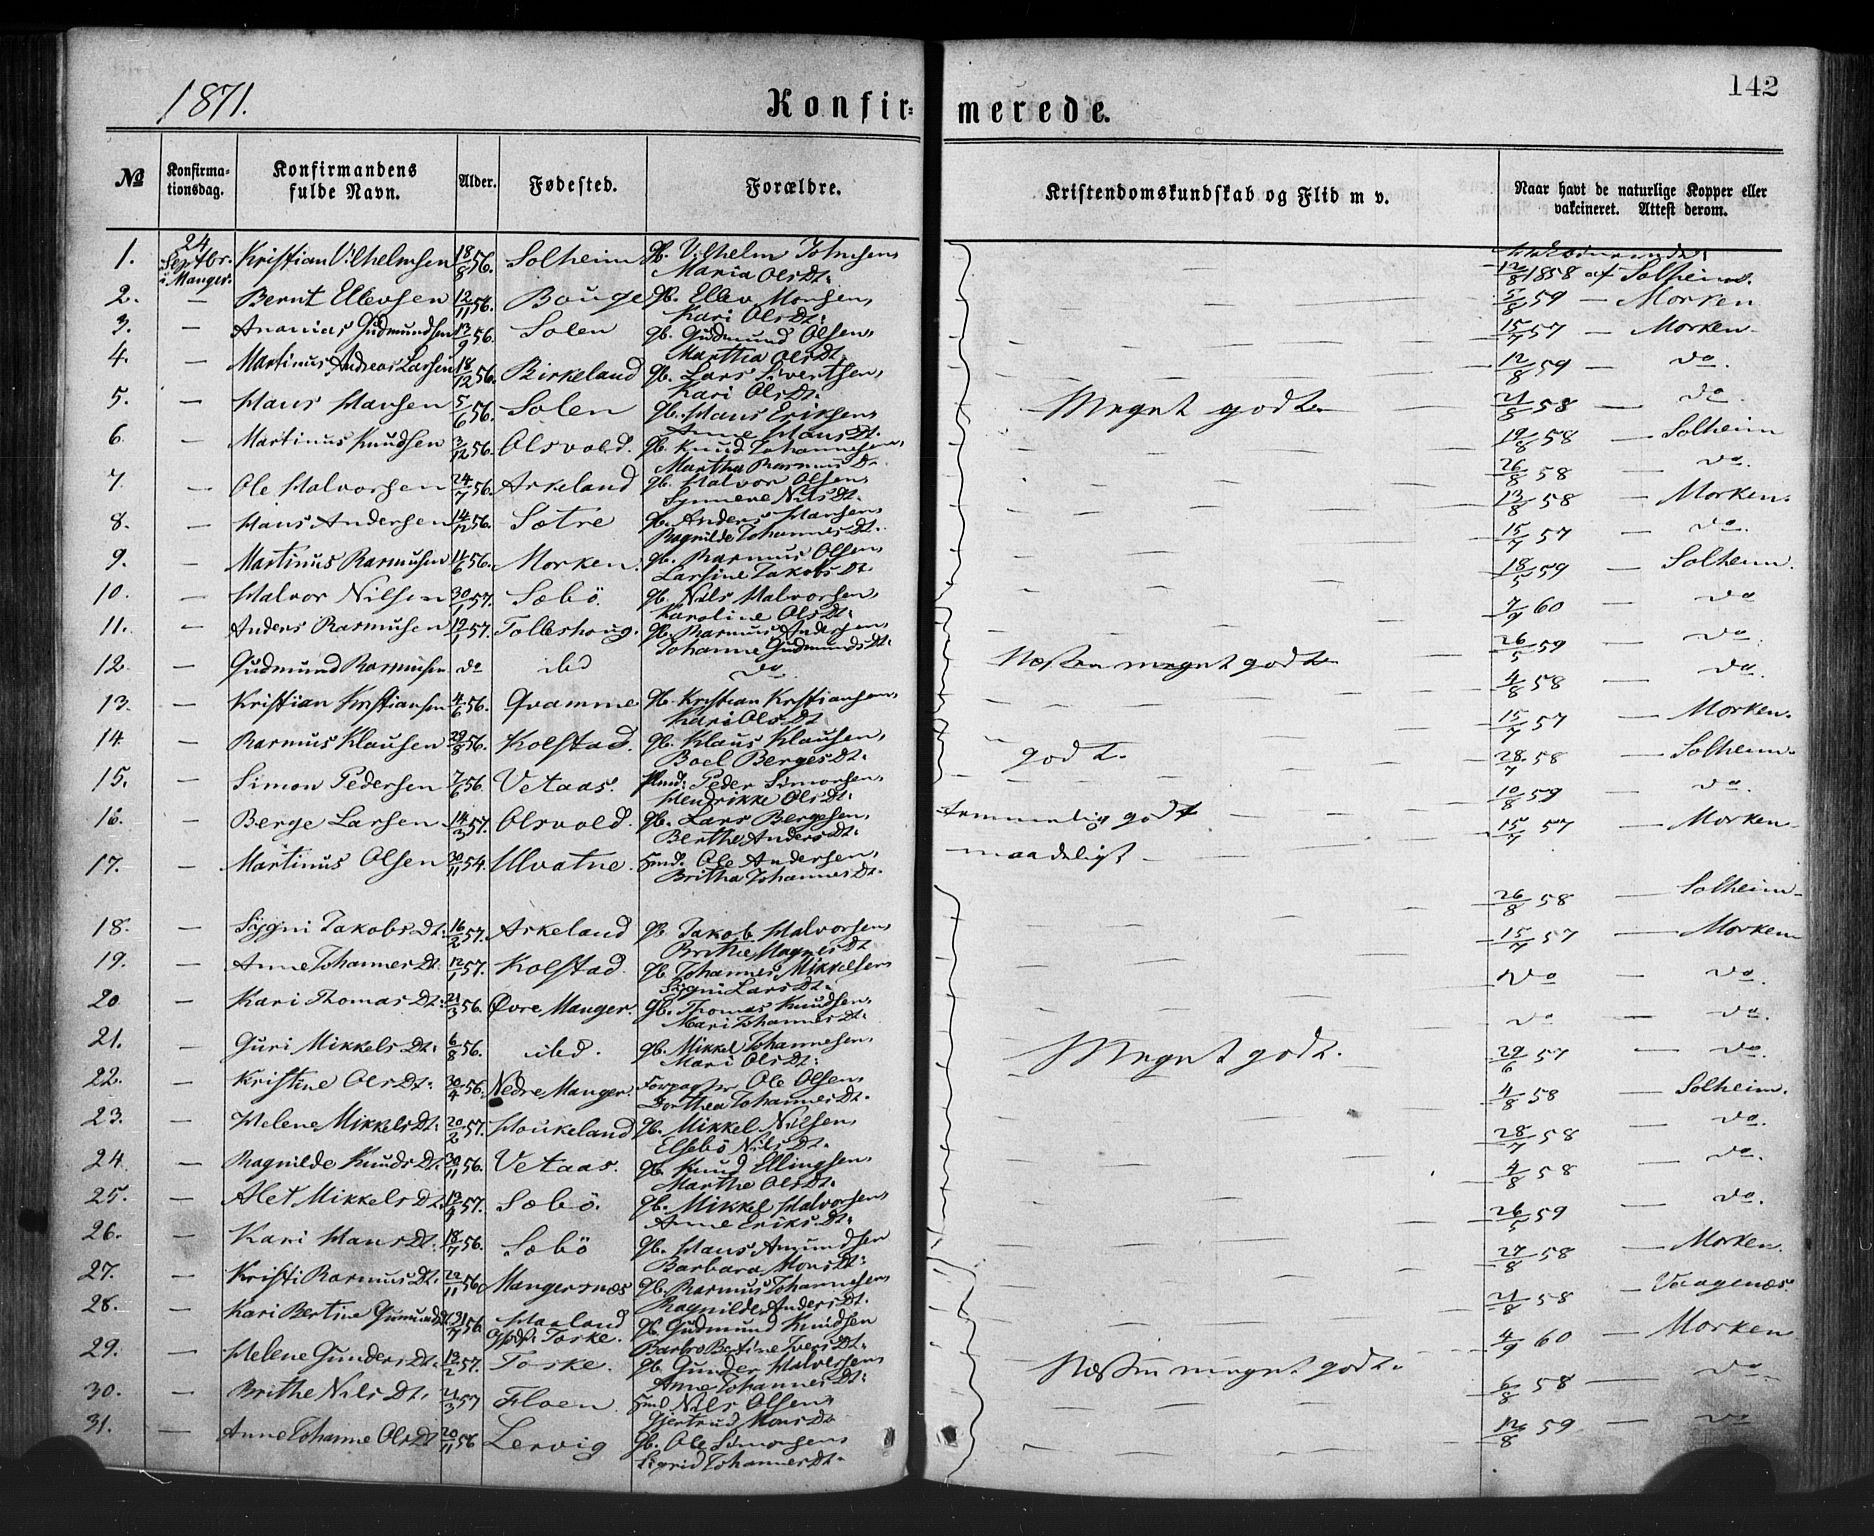 1871.
Konfir=
merede.
142
No
Konfirma-
tionsdag.
Konfirmandens
fulde Navn.
Alder.
Fødested.
Forældre.
Kristendomskundskab og Flid m v.
Naar havt de naturlige Kopper eller
vakcineret. Attest derom.
1. 24 Septbr. i Manger. Kristian Vilhelmsen 18/8 56. Solheim Gb. Vilhelm Johnesen
Maria Olsdt: 12/8 1858 af Solheim.
2. — Bernt Ellevsen 12/11 56. Bouge Gb. Ellev Monsen,
Kari Olsdt: 5/8 59 — Morken
3. — Ananias Gudmundsen 13/9 56. Solen gb. Gudmund Olsen,
Martha Olsdt. 15/7 57 — Morken.
4. — Martinus Andreas Larsen 18/12 56. Birkeland gb. Lars Sjvertsen,
Kari Olsdt: 12/8 59 — do.
5. — Hans Hansen 5/6 56. Solen gb. Hans Eriksen,
Anne Hansdt. Meget godt. 21/8 58 — do.
6. — Martinus Knudsen 3/12 56. Olsvold. gb. Knud Johannesen,
Martha Rasmusdt. 19/8 58 — Solheim
7. — Ole Halvorsen 24/7 56. Askeland gb. Halvor Olsen,
Synneve Nilsdt. 26/8 58 do.
8. — Hans Andersen 14/12 56. Sætre gb. Anders Hansen,
Ragnilde Johannesdt. 13/8 58 — Morken.
9. — Martinus Rasmusen 14/6 56. Morken. gb. Rasmus Olsen,
Larsine Jakobsdt. 15/7 57 — do.
10. — Halvor Nilsen 30/1 57. Sæbö. gb. Nils Halvorsen,
Karoline Olsdt: 18/5 59 — Solheim.
11. — Anders Rasmusen 12/1 57. Tolleshoug. gb. Rasmus Andersen,
Johanne Gudmundsdt: 7/9 60 — do
12. — Gudmund Rasmusen do ibd do Næsten meget godt 26/5 59 — do.
13. — Kristian Kristiansen 4/6 56. Qvamme gb. Kristian Kristiansen,
Kari Olsdt. 4/8 58 — do.
14. — Rasmus Klausen 29/8 56. Kolstad. gb. Klaus Klausen,
Boel Bergesdt: godt. 15/7 57 — Morken.
15. — Simon Pedersen 7/6 56. Vetaas. Hmd: Peder Simonsen,
Hendrikke Olsdt: 28/7 58 — Solheim.
16. — Berge Larsen 14/3 57. Olsvold. gb. Lars Bergesen,
Berthe Andersdt: temmelig godt 10/8 59 — do.
17. — Martinus Olsen 30/11 54. Ulvatne. Hmd. Ole Andersen,
Britha Johannesdt. maadeligt 15/7 57 — Morken.
18. — Sygni Jakobsdt: 16/2 57. Askeland gb. Jakob Halvorsen,
Brithe Magnesdt 26/8 58 — Solheim.
19. — Anne Johannesdt. 12/1 57. Kolstad. gb. Johannes Mikkelsen
Sygni Larsdt: 15/7 57 — Morken
20. — Kari Thomasdt: 21/3 56. Øvre Manger. gb. Thomas Knudsen,
Mari Johannesdt: do — do.
21. — Guri Mikkelsdt: 6/8 56. ibd. gb. Mikkel Johannesen,
Mari Olsdt: Meget godt. do — do.
22. — Kristine Olsdt: 30/4 56. Nedre Manger. Forpagter Ole Olsen,
Dorthea Johannesdt. 29/6 57 — do.
23. — Helene Mikkelsdt: 20/2 57. Houkeland gb. Mikkel Nilsen,
Elsebö Nilsdt: 4/8 58 — Solheim.
24. — Ragnilde Knudsdt. 30/11 56. Vetaas. gb. Knud Ellingsen,
Marthe Olsdt: 28/7 58 — do.
25. — Alet Mikkelsdt. 13/4 57. Sæbö. gb. Mikkel Halvorsen,
Anne Eriksdt: 4/8 58 — do.
26. — Kari Hansdt: 18/7 56. Sæbö gb. Hans Amundsen
Barbara Monsdt: 26/5 59 — do.
27. — Kristi Rasmusdt. 22/11 56. Mangersnæs gb. Rasmus Johannesen
Ragnilde Andersdt. 27/8 58 — Morken.
28. — Kari Bertine Gudmundsdt. 31/7 56. Haaland
Opf. Toske. gb. Gudmund Knudsen
Barbro Bertine Iversdt: 21/8 58 — Vaagenæs.
29. — Helene Gundersdt. 13/2 57. Toske. gb. Gunder Halvorsen,
Anne Johannesdt: Næsten meget godt. 4/9 60 — Morken
30. — Brithe Nilsdt. 21/3 57 Floen. Hmd Nils Olsen,
Gjertrud Monsdt: 6/8 58 — do.
31. — Anne Johanne Olsdt 20/11 56 Lervig gb. Ole Simonsen,
Sigrid Johannesdt. 12/8 59 — do